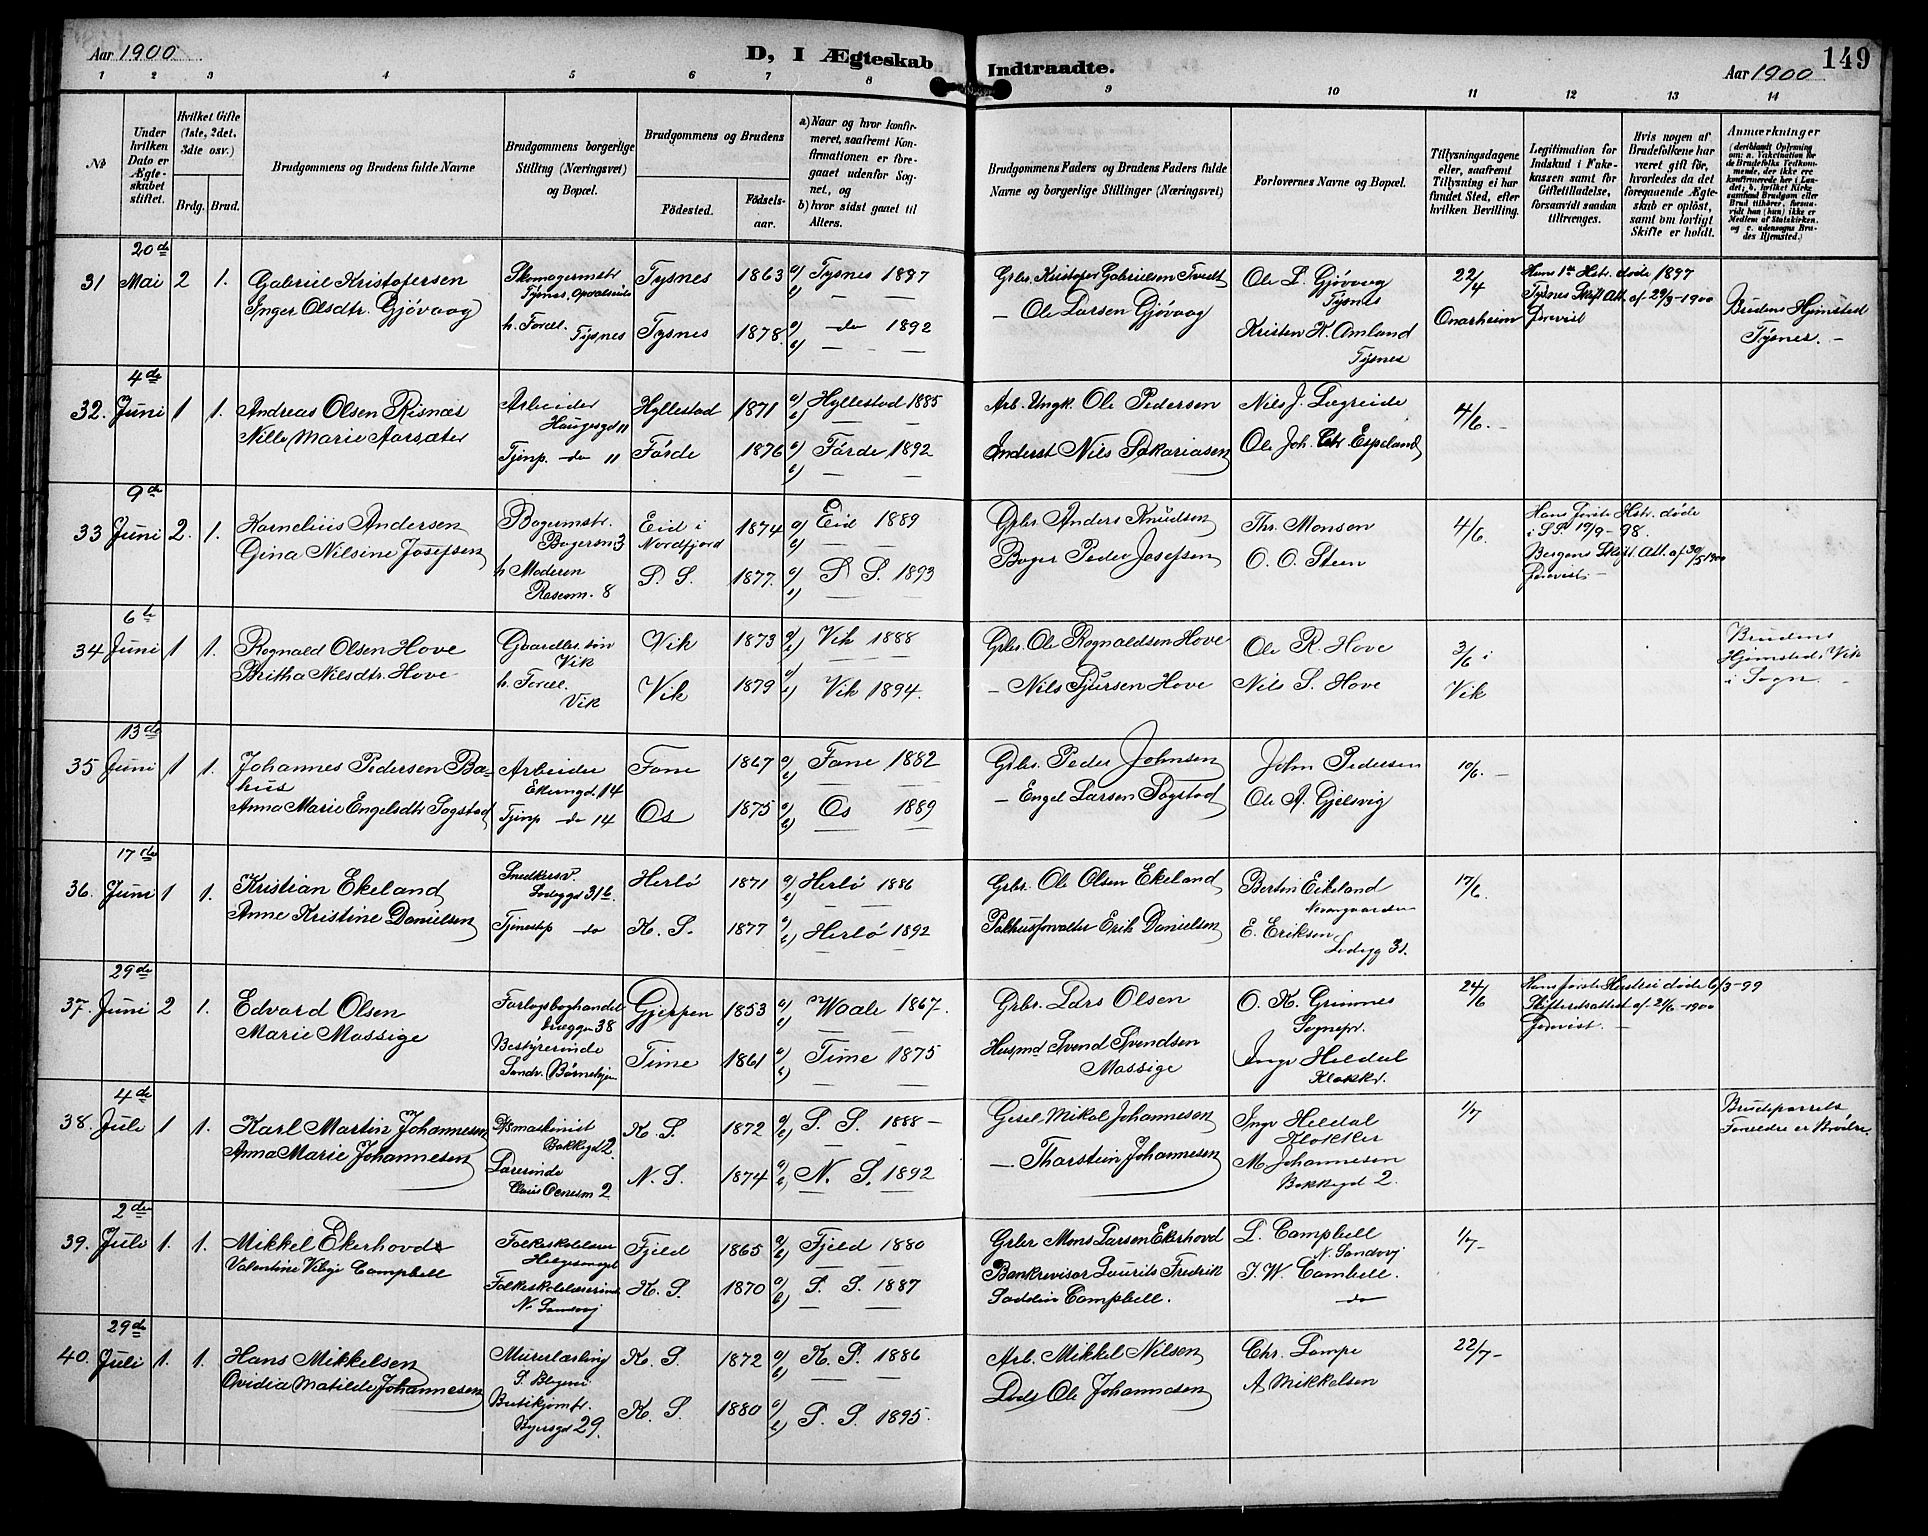 Aar 1900.
D, I Ægteskab Indtraadte.
149
Aar 1900
1 2 3 4 5 6 7 8 9 10 11 12 13 14
No
Under hvilken Dato er Ægteskabet stiftet.
Hvilket Gifte (1ste, 2det, 3die osv.)
Brdg. Brud.
Brudgommens og Brudens fulde Navne
Brudgommens borgerlige Stilling (Næringsvei) og Bopæl.
Brudgommens og Brudens
Fødested.
Fødselsaar.
a) Naar og hvor konfirmeret, saafremt Konfirmationen er foregaaet udenfor Sognet, og
b) hvor sidst gaaet til Alters.
Brudgommens Faders og Brudens Faders fulde Navne og borgerlige Stillinger (Næringsvei)
Forlovernes Navne og Bopæl.
Tillysningsdagene eller, saafremt Tillysning ei har fundet Sted, efter hvilken Bevilling.
Legitimation for Indskud i Enkekassen samt for Giftetilladelse, forsaavidt saadan tiltrænges.
Hvis nogen af Brudefolkene har været gift før, hvorledes da det foregaaende Ægteskab er opløst, samt om lovligt Skifte er holdt.
Anmærkninger
31 20de Mai 2 1.
Gabriel Kristofersen
Inger Olsdtr. Gjövaag
Skomagermstr
Tysnes
h. Foræl. Tysnes
Tysnes 1863 a) Tysnes 1887
Tysnes 1878. a) do 1892
Grbr. Kristofer Gabrielsen Tvedt
— Ole Larsen Gjövaag
Ole L. Gjövaag
Tysnes
Kristen K. Amland
Tysnes
22/4
Onarheim
Hans 1ste Hstr. døde 1897
Tysnes Skift. Att. af 29/3-1900
forevist
Brudens Hjemsted
Tysnes. —
32. 4de Juni 1 1.
Andreas Olsen Risnæs
Nille Marie Aarsæter
Arbeider
Haugesgd 11
Tjenp. do 11
Hyllestad 1871 a) Hyllestad 1885
Förde 1876 a) Förde 1892
Arb. Ungk. Ole Pedersen
Inderst Nils Sakariasen
Nils J. Lægreide
Ole Joh. Chr. Espeland
4/6. —
33 9de Juni 2. 1.
Kornelius Andersen
Gina Nilsine Josefsen
Bagermstr.
h Moderen
Rosesm. 8
Eid i Nordfjord 1874 a) Eid 1889
S. S. 1877. a) S. S. 1893
Grbr. Anders Knudsen
Bager Peder Josefsen
Thr. Monsen
O. O. Steen
4/6.
Hans første Hstr. døde
i S.S. 19/9-98.
Bergens Skift. Att. af 30/5 1900
forevist. —
34 6te Juni 1 1.
Rognald Olsen Hove
Britha Nilsdtr. Hove
Gaardbr. søn
Vik
h. Foræl.
Vik
Vik 1873 a) Vik 1888
Vik 1879 a) Vik 1894.
Grbr. Ole Rognaldsen Hove
— Nils Sjursen Hove
Ole R. Hove
Nils S. Hove
3/6 i
Vik
Brudens
Hjemsted: Vik
i Sogn. —
35 13de Juni 1 1.
Johannes Pedersen Bahus
Anna Marie Engelsdtr Søgstad
Arbeider
Tjenp do 14
Fane 1867 a) Fane 1882
Os 1875 a) Os 1889
Grbr. Peder Johnsen
— Engel Larsen Søgstad
John Pedersen
Ole A. Gjelsvig
10/6. —
36. 17de Juni 1 1.
Kristian Ekeland
Anne Kristine Danielsen
Snedkersv.
Lodeggd 31b.
Tjenestep do
Herlö 1871 a) Herlö 1886
K. S. 1877 a) Herlö 1892
Grbr. Ole Olsen Ekeland
Pakhusforvalter Erik Danielsen
Bertin Eikeland
E. Eriksen
Lodegg 31.
17/6.
37. 29de Juni 2 1.
Edvard Olsen
Marie Massige
Forlagsboghandel
Dræggen 38
Bestyrerinde
Sandv. Børnehjem
Gjerpen 1853 a) Waale 1867.
Time 1861 a) Time 1875
Grbr. Lars Olsen
Husmd Svend Svendsen
Massige
O. K. Grimnes
Sognepr.
Ingv Heldal
Klokkr.
24/6
Hans første Hustru døde 6/3-99
Skifteretsattest af 21/6-1900
Forevist. —
38. 4de Juli 1 1.
Karl Martin Johannesen
Anna Marie Johannesen
D/smaskinist
Bakkegd 2.
Lærerinde
K. S. 1872 a) S. S. 1888 —
N. S. 1874 a) N. S. 1892
Gesel. Mikal Johannesen
— Thorstein Johannesen
Ingv Heldal
Klokker
M Johannesen
Bakkegd 2.
1/7
Brudeparrets
Foreldre er Brødre.
39. 2den Juli 1. 1.
Mikkel Ekerhovd
Valentine Vibye Campbell
Folkeskolelærer
Folkeskolelærerinde
N. Sandvej
Fjeld 1865 a) Fjeld 1880
K. S. 1870 a) S. S. 1887
Grbr Mons Larsen Ekerhovd
Bankrevisor Laurits Fredrik
Campbell.
L. Campbell
N. Sandvej
J. W. Cambell.
do
1/7 —
40. 29de Juli 1. 1.
Hans Mikkelsen
Ovidia Matilde Johannesen
Murerlærling
Butikjomfr.
29.
K. S. 1872 a) K. S. 1886
K. S. 1880 a) S. S. 1895.
Arb. Mikkel Nilsen
Lods Ole Johannesen
Chr. Lampe
A Mikkelsen
22/7 —